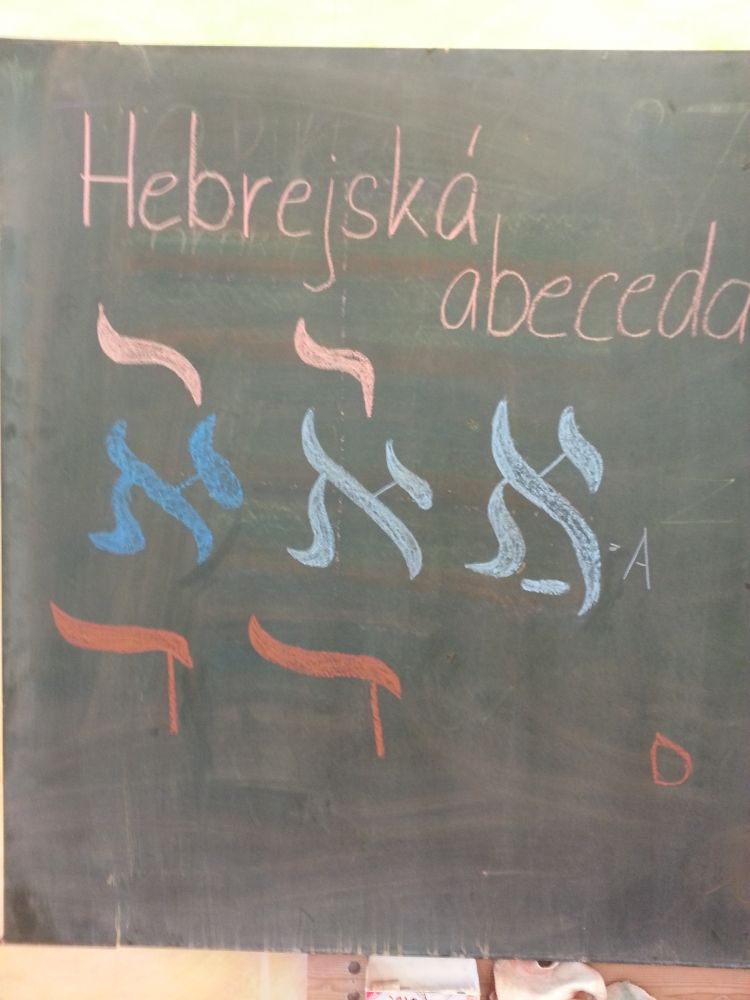 Hebrejská
abeceda
ר ר
א א אַ = A
ד ד
D